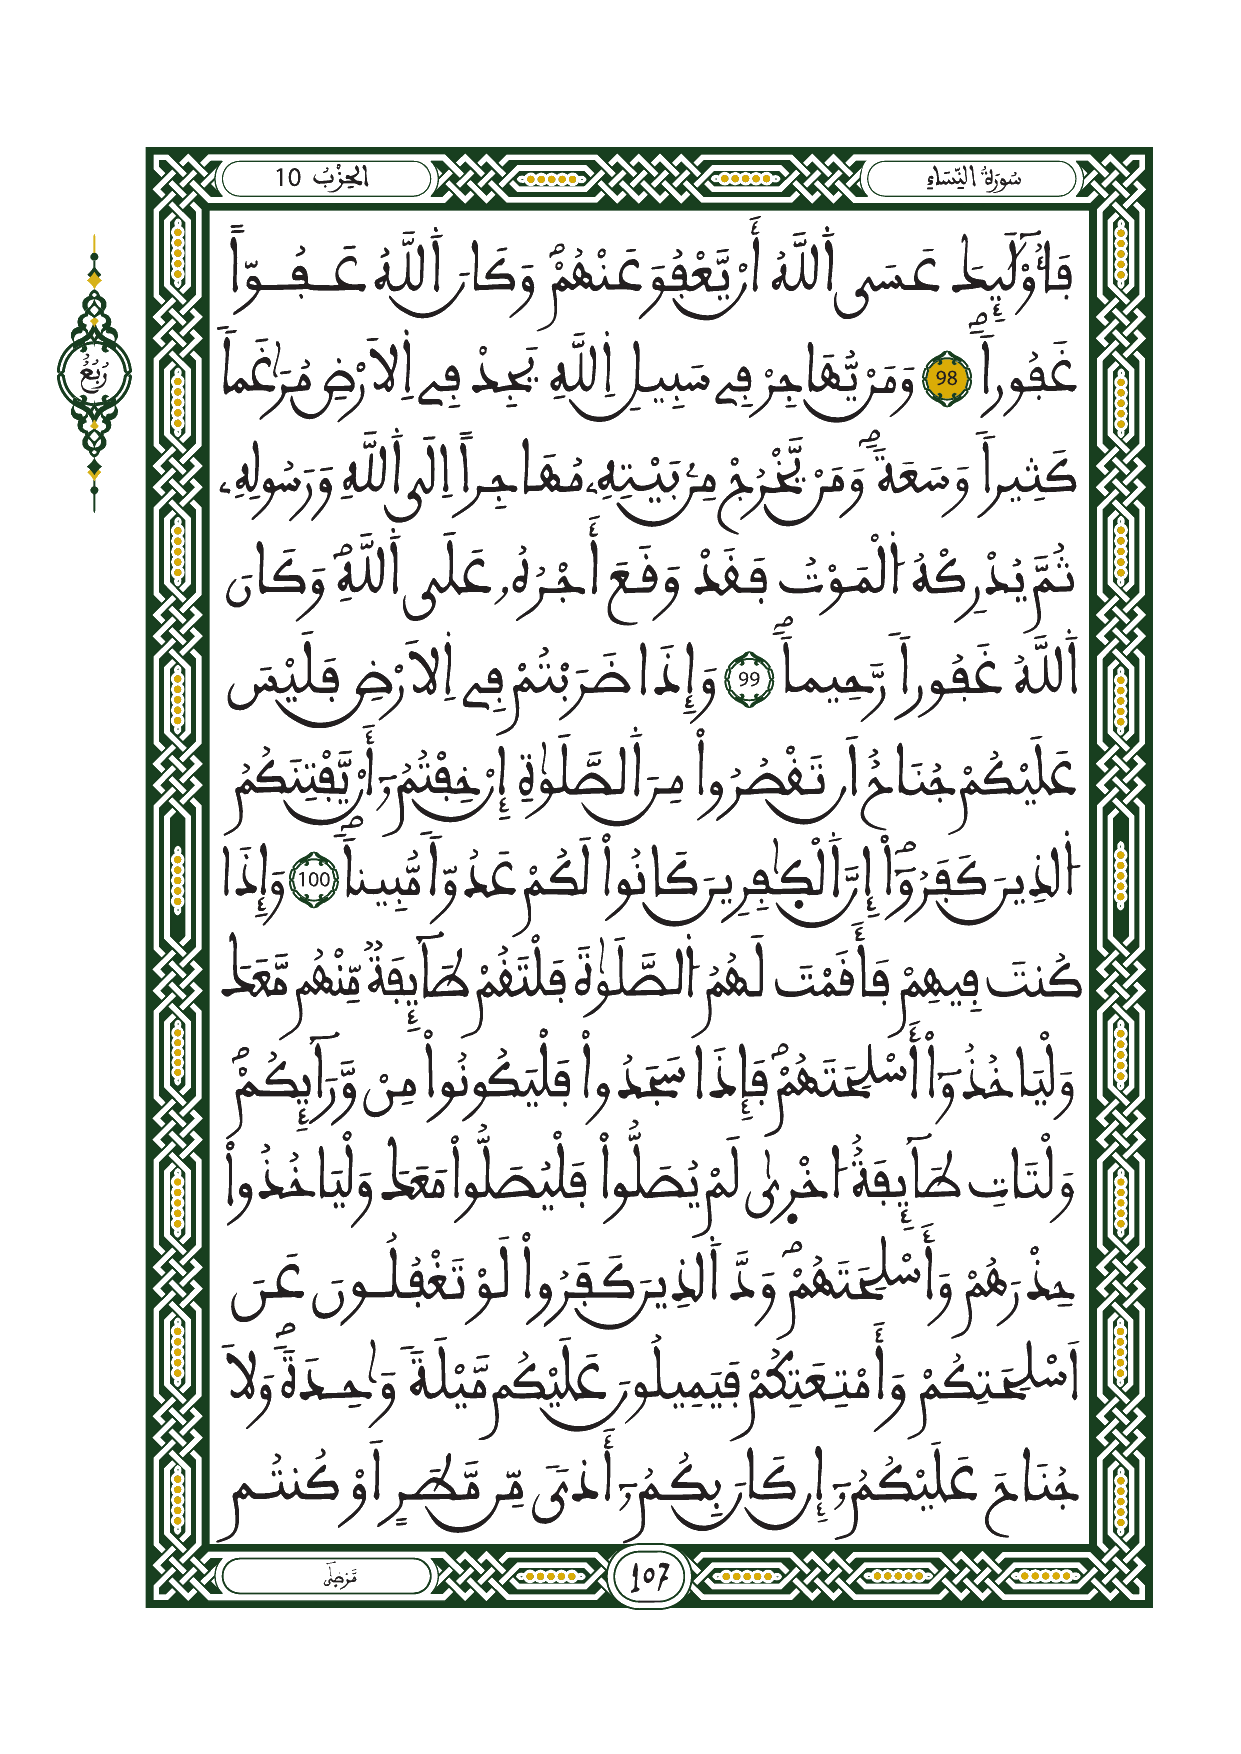 سُورَةُ النِّسَاءِ
الحِزْبُ 10
رُبُعُ
فَأُوْلَٰٓئِكَ عَسَى اَ۬للَّهُ أَنْ يَّعْفُوَ عَنْهُمْۖ وَكَانَ اَ۬للَّهُ عَفُوّاً
غَفُوراٗۖ 98 وَمَنْ يُّهَاجِرْ فِے سَبِيلِ اِ۬للَّهِ يَجِدْ فِے اِ۬لَارْضِ مُرَٰغَماٗ
كَثِيراٗ وَسَعَةٗۖ وَمَنْ يَّخْرُجْ مِنۢ بَيْتِهِۦ مُهَاجِراً اِلَى اَ۬للَّهِ وَرَسُولِهِۦ
ثُمَّ يُدْرِكْهُ اُ۬لْمَوْتُ فَقَدْ وَقَعَ أَجْرُهُۥ عَلَى اَ۬للَّهِۖ وَكَانَ
اَ۬للَّهُ غَفُوراٗ رَّحِيماٗۖ 99 وَإِذَا ضَرَبْتُمْ فِے اِ۬لَارْضِ فَلَيْسَ
عَلَيْكُمْ جُنَاحٌ اَن تَقْصُرُواْ مِنَ اَ۬لصَّلَوٰةِ إِنْ خِفْتُمُۥٓ أَنْ يَّفْتِنَكُمُ
اُ۬لذِينَ كَفَرُوٓاْۖ إِنَّ اَ۬لْكٰ۪فِرِينَ كَانُواْ لَكُمْ عَدُوّاٗ مُّبِيناٗۖ 100 وَإِذَا
كُنتَ فِيهِمْ فَأَقَمْتَ لَهُمُ اُ۬لصَّلَوٰةَ فَلْتَقُمْ طَآئِفَةٞ مِّنْهُم مَّعَكَ
وَلْيَاخُذُوٓاْ أَسْلِحَتَهُمْۖ فَإِذَا سَجَدُواْ فَلْيَكُونُواْ مِنْ وَّرَآئِكُمْۖ
وَلْتَاتِ طَآئِفَةٌ اُخْر۪ىٰ لَمْ يُصَلُّواْ فَلْيُصَلُّواْ مَعَكَ وَلْيَاخُذُواْ
حِذْرَهُمْ وَأَسْلِحَتَهُمْۖ وَدَّ اَ۬لذِينَ كَفَرُواْ لَوْ تَغْفُلُونَ عَنَ
اَسْلِحَتِكُمْ وَأَمْتِعَتِكُمْ فَيَمِيلُونَ عَلَيْكُم مَّيْلَةٗ وَٰحِدَةٗۖ وَلَا
جُنَاحَ عَلَيْكُمُۥٓ إِن كَانَ بِكُمُۥٓ أَذيٗ مِّن مَّطَرٍ اَوْ كُنتُم
107
مَّرْضَىٰٓ